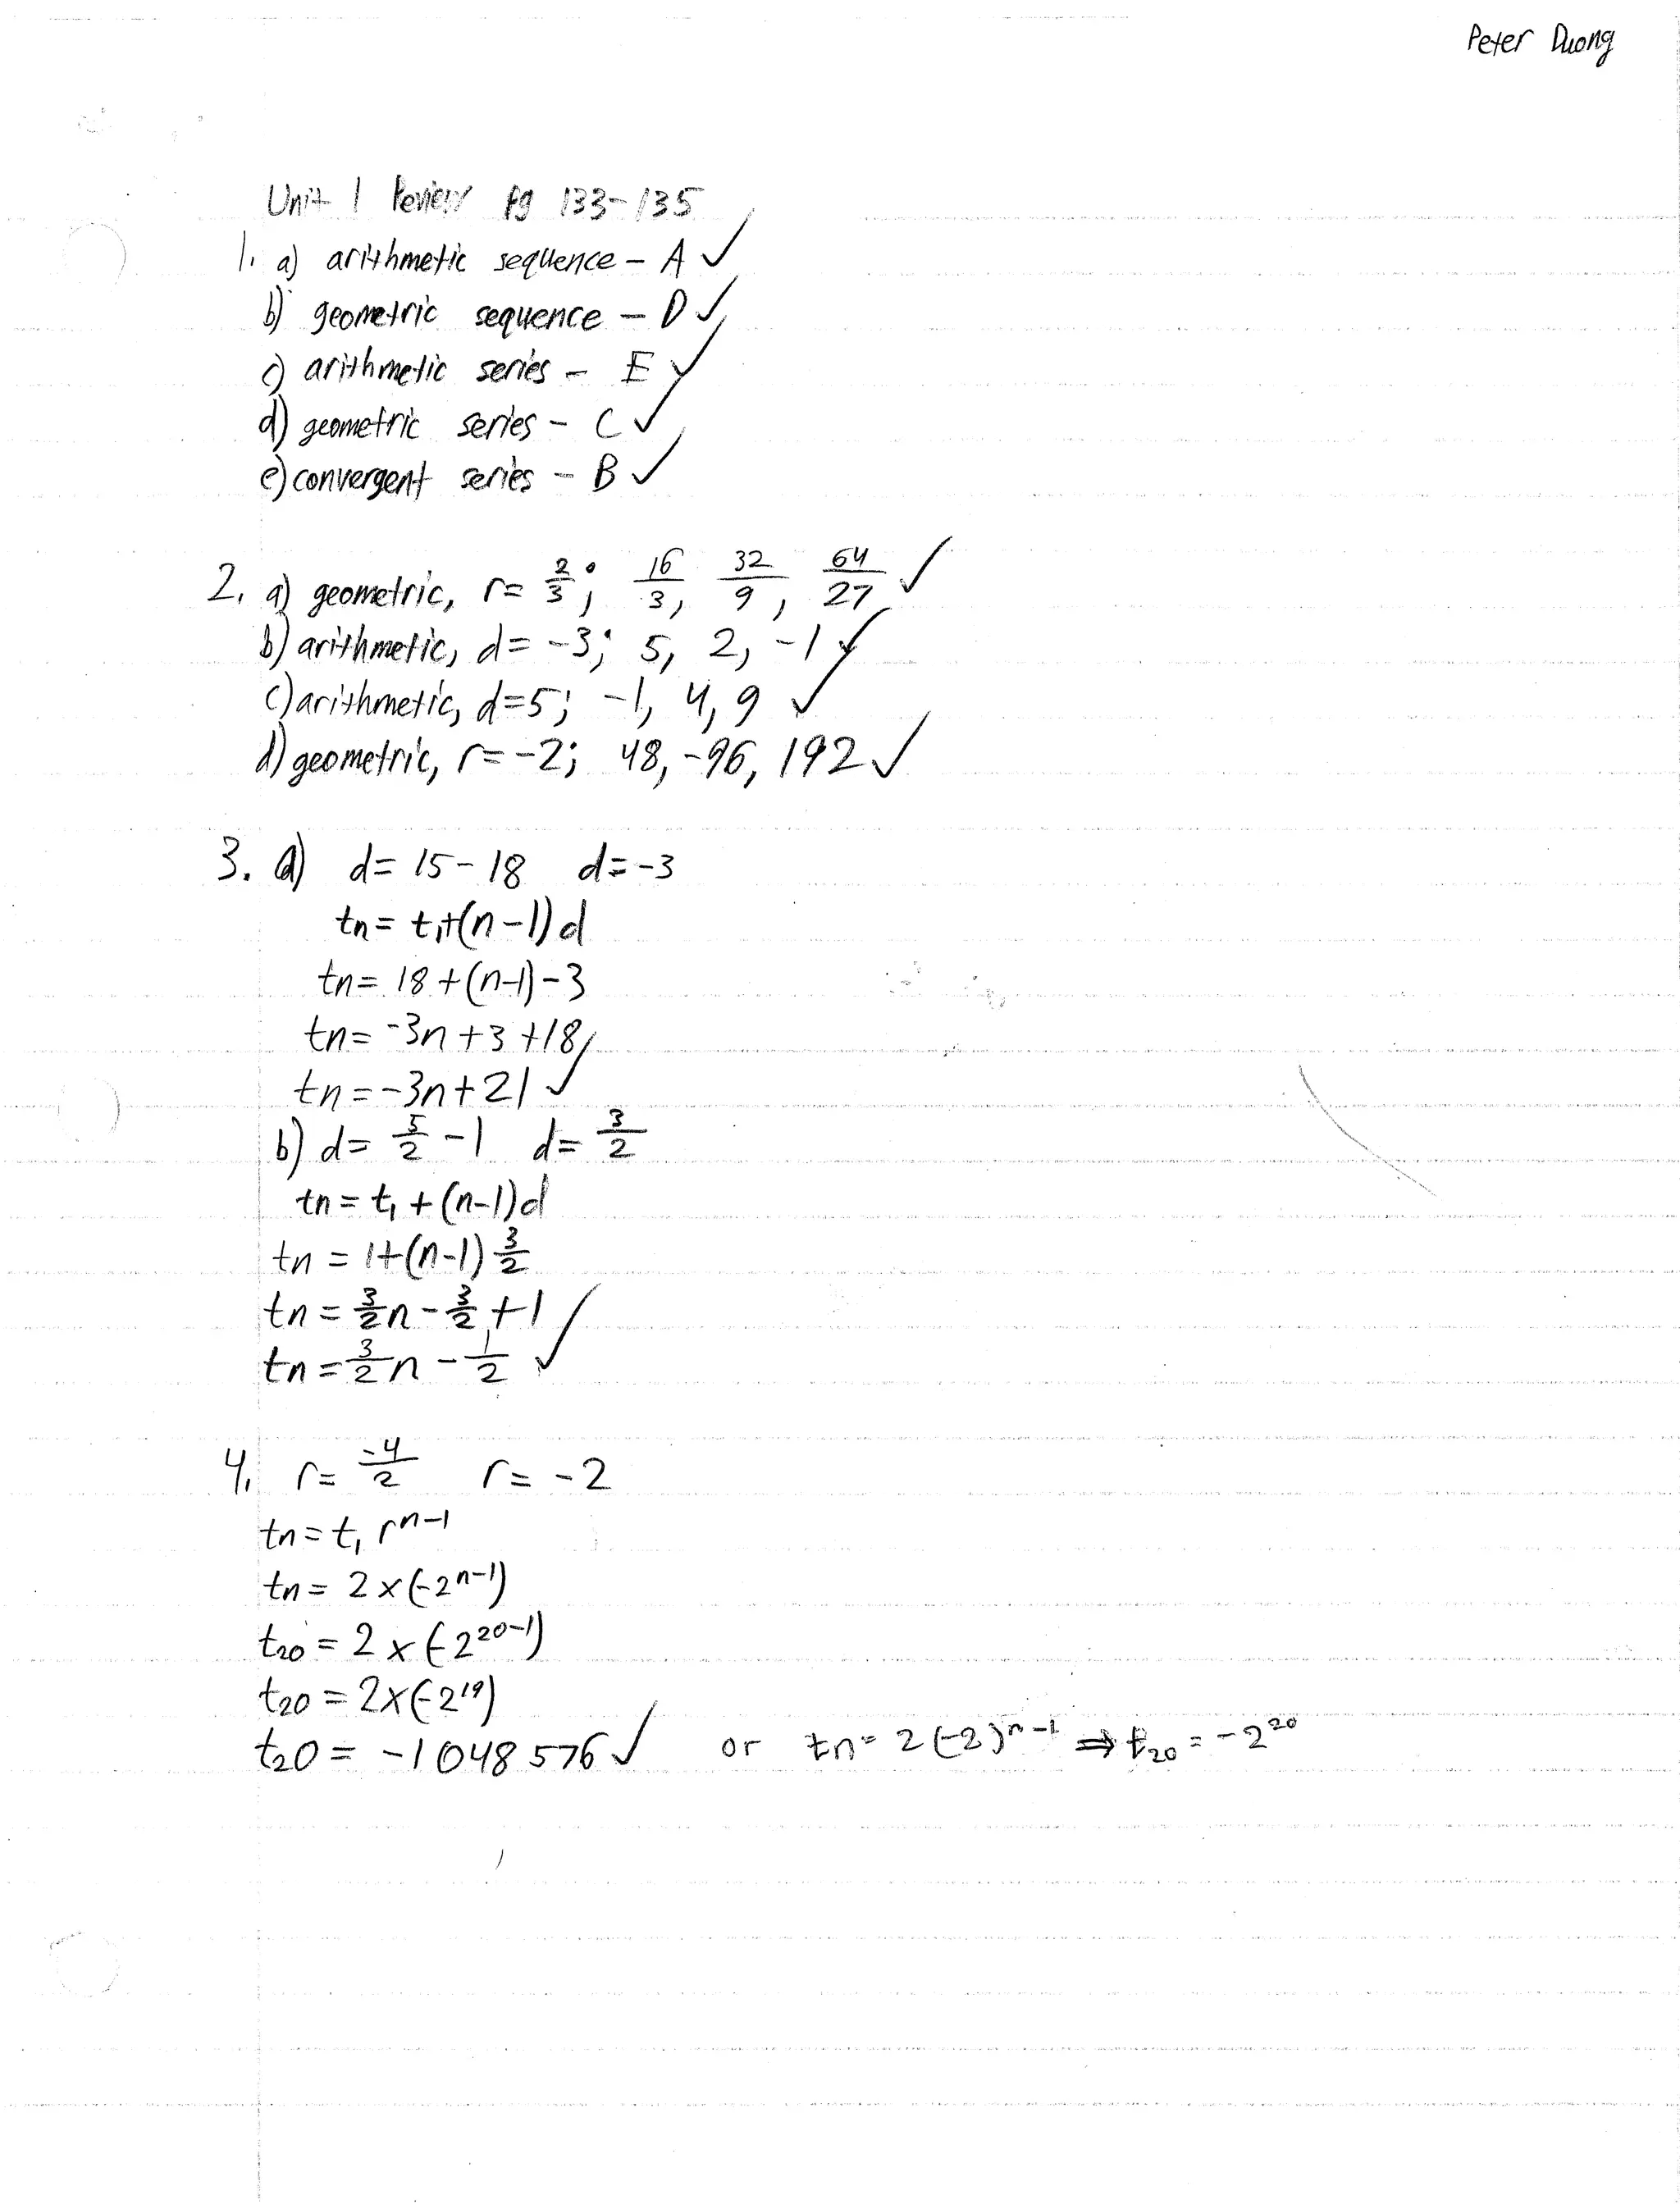 Peter Duong
Unit 1 Review pg 133-135
1. a) arithmetic sequence - A ✓
b) geometric sequence - D ✓
c) arithmetic series - E ✓
d) geometric series - C ✓
e) convergent series - B ✓
2. a) geometric, r = 2/3; 16/3, 32/9, 64/27 ✓
b) arithmetic, d = -3; 5, 2, -1 ✓
c) arithmetic, d=5; -1, 4, 9 ✓
d) geometric, r = -2; 48, -96, 192 ✓
3. a) d = 15 - 18 d = -3
tn = t₁+(n-1)d
tn = 18+(n-1)-3
tn = -3n+3+18
tn = -3n+21 ✓
b) d = 5/2 - 1 d = 3/2
tn = t₁ + (n-1)d
tn = 1+(n-1) 3/2
tn = 3/2n - 3/2 + 1
tn = 3/2n - 1/2 ✓
4. r = -4/2 r = -2
tn = t₁ rⁿ⁻¹
tn = 2 x (-2ⁿ⁻¹)
t₂₀ = 2 x (-2²⁰⁻¹)
t₂₀ = 2x(-2¹⁹)
t₂₀ = -1048576 ✓ or tn = 2(-2)ⁿ⁻¹ ⇒ t₂₀ = -2²⁰